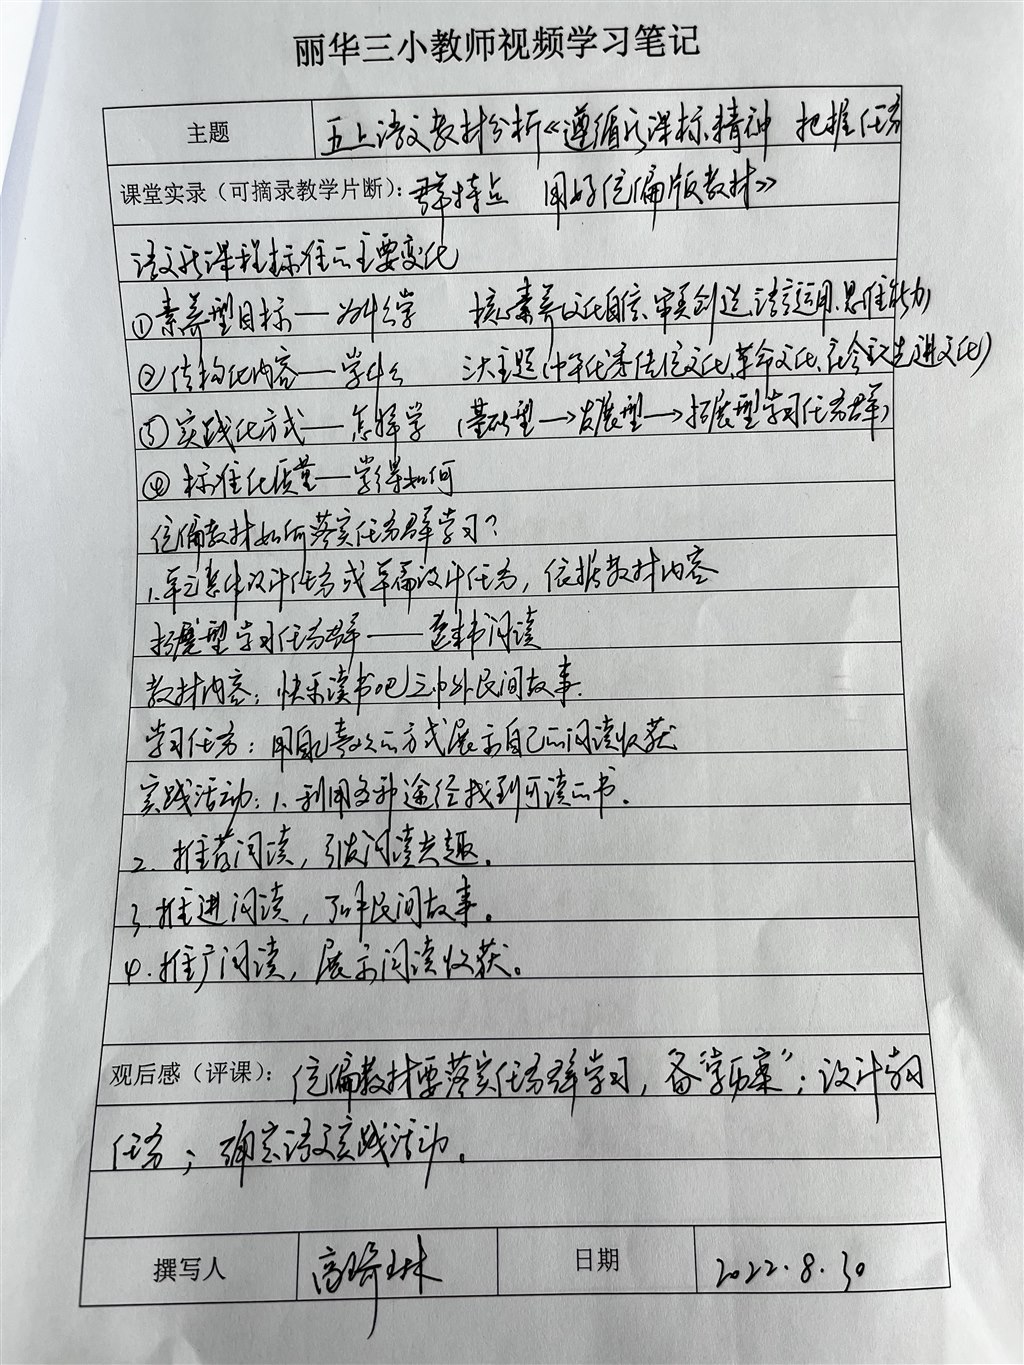 丽华三小教师视频学习笔记
主题 五上语文教材分析《遵循新课标精神 把握任务
课堂实录（可摘录教学片断）： 群特点 用好统编版教材》
语文新课程标准的主要变化
①素养型目标——为什么学 核心素养(文化自信、审美创造、语言运用、思维能力)
②结构化内容——学什么 三大主题(中华优秀传统文化、革命文化、社会主义先进文化)
③实践化方式——怎样学 (基础型→发展型→拓展型学习任务群)
④标准化质量——学得如何
统编教材如何落实任务群学习？
1.单元整体设计任务或单篇设计任务，依据教材内容
拓展型学习任务群——整本书阅读
教材内容：快乐读书吧 中外民间故事.
学习任务：用自己喜欢的方式展示自己的阅读收获
实践活动：1.利用各种途径找到可读的书.
2.推荐阅读，引发阅读兴趣.
3.推进阅读，了解民间故事.
4.推广阅读，展示阅读收获。
观后感（评课）： 统编教材要落实任务群学习，备“学历案”；设计学习
任务；确定语文实践活动.
撰写人 高琳 日期 2022.8.30